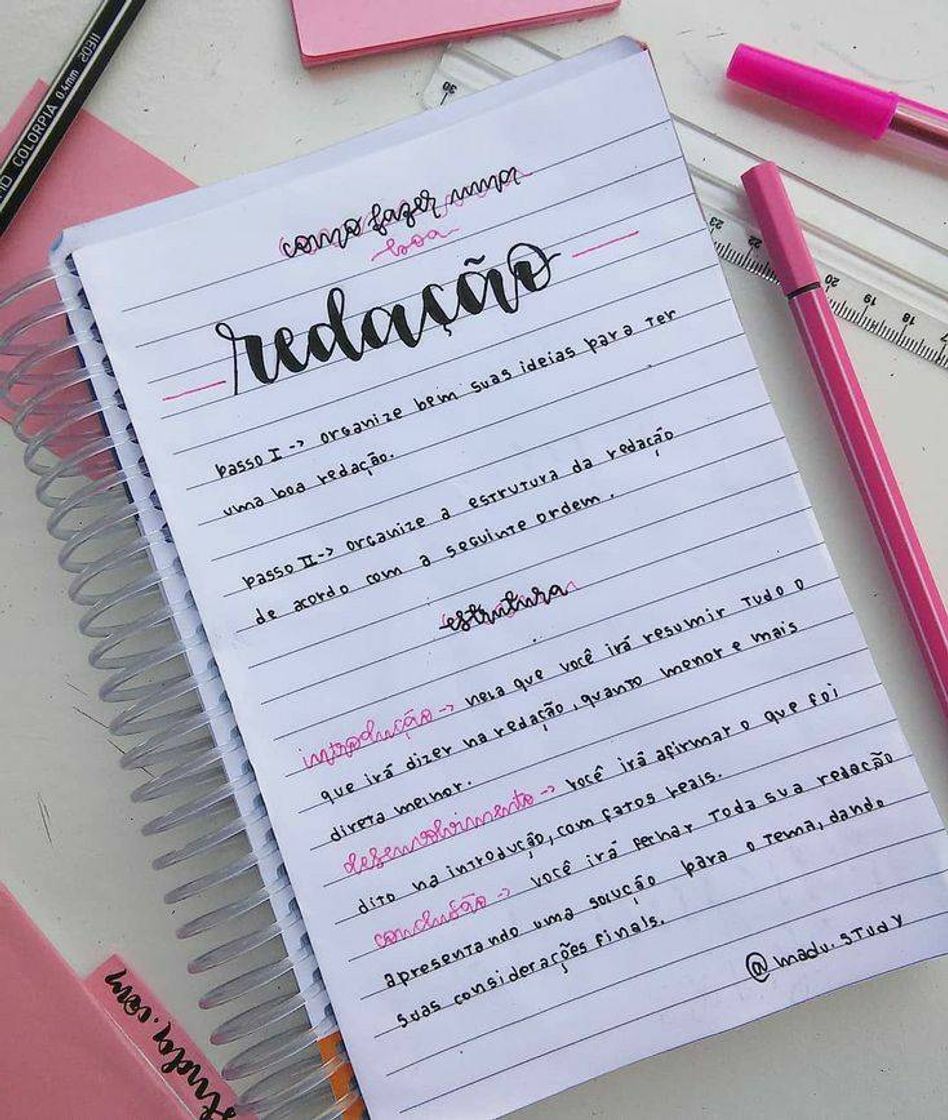 COLORPIA 0.4mm 20311
30
como fazer uma
boa
redação
23
22
20
19
18
17
passo I -> organize bem suas ideias para ter
uma boa redação.
passo II -> organize a estrutura da redação
de acordo com a seguinte ordem.
estrutura
introdução -> nela que você irá resumir tudo o
que irá dizer na redação, quanto menor e mais
direta melhor.
desenvolvimento -> você irá afirmar o que foi
dito na introdução, com fatos reais.
conclusão -> você irá fechar toda sua redação
apresentando uma solução para o tema, dando
suas considerações finais.
@madu.study